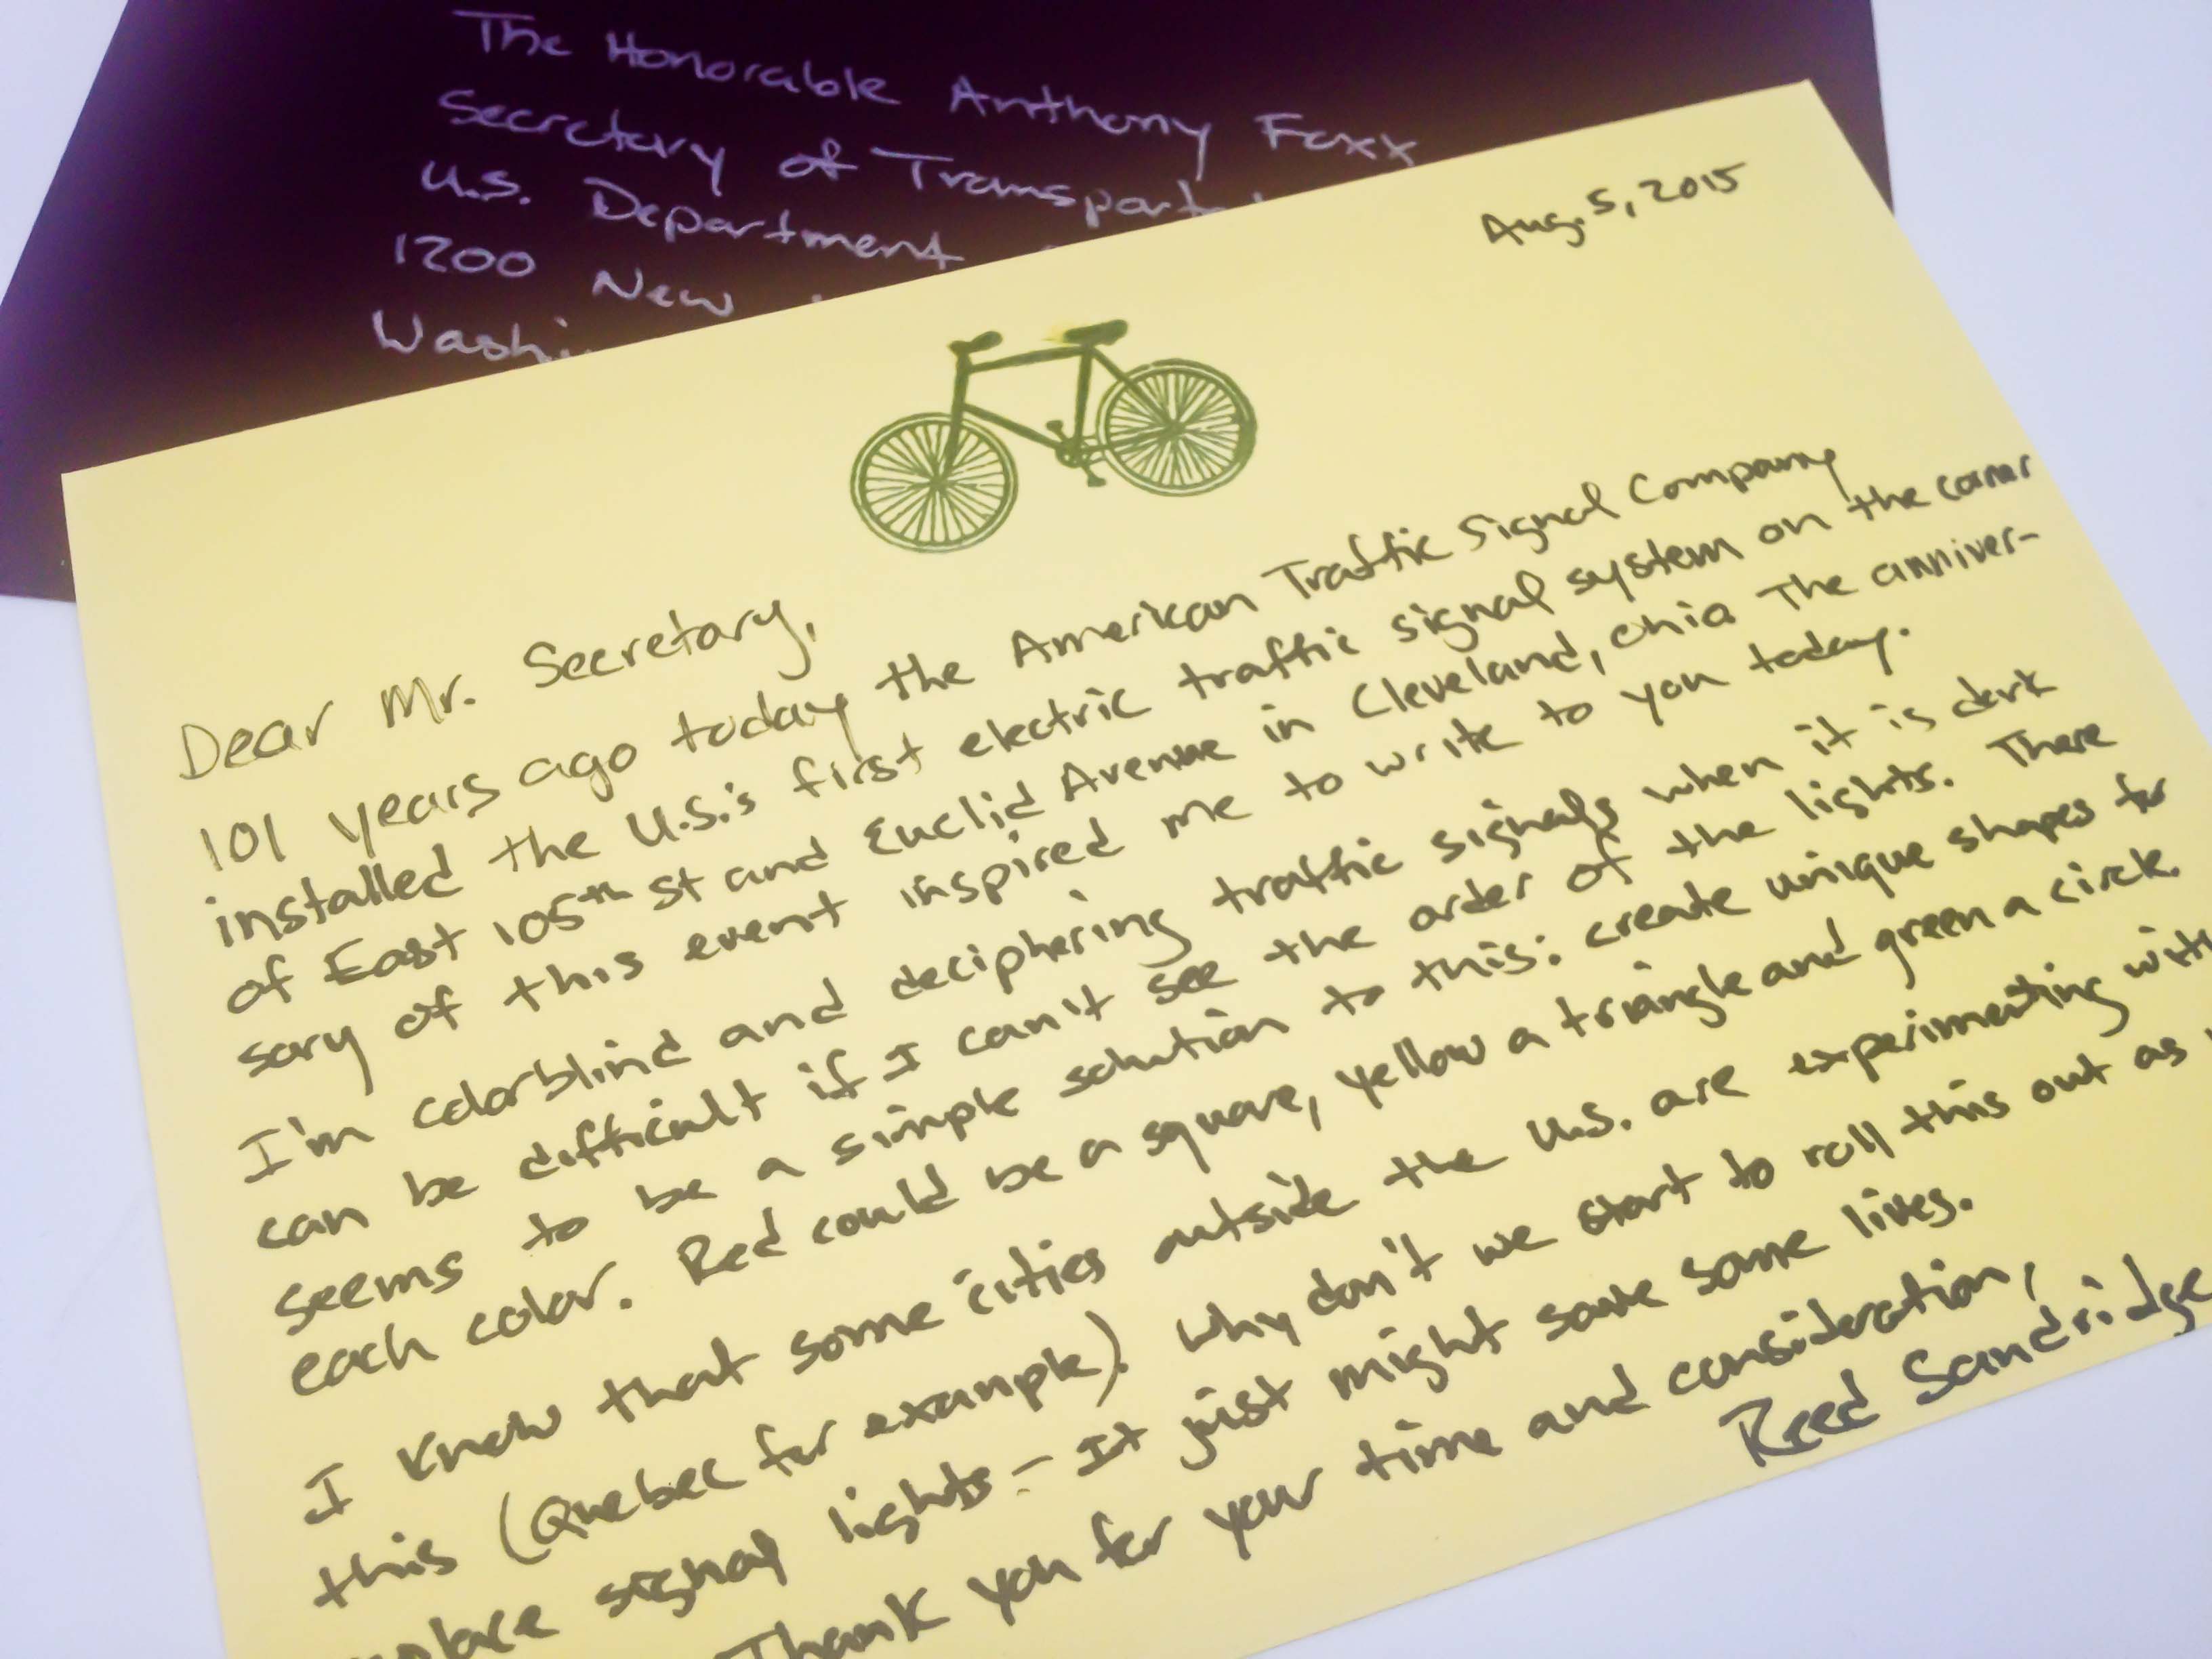 The Honorable Anthony Foxx
Secretary of Transport
U.S. Department
1200 New
Washi
Aug. 5, 2015
Dear Mr. Secretary,
101 years ago today the American Traffic Signal Company
installed the U.S.'s first electric traffic signal system on the corner
of East 105th St and Euclid Avenue in Cleveland, Ohio The anniver-
sary of this event inspired me to write to you today.
I'm colorblind and deciphering traffic signals when it is dark
can be difficult if I can't see the order of the lights. There
seems to be a simple solution to this: create unique shapes for
each color. Red could be a square, yellow a triangle and green a circle.
I know that some cities outside the U.S. are experimenting with
this (Quebec for example). Why don't we start to roll this out as
place signal lights - It just might save some lives.
Thank you for your time and consideration,
Reed Sandridge